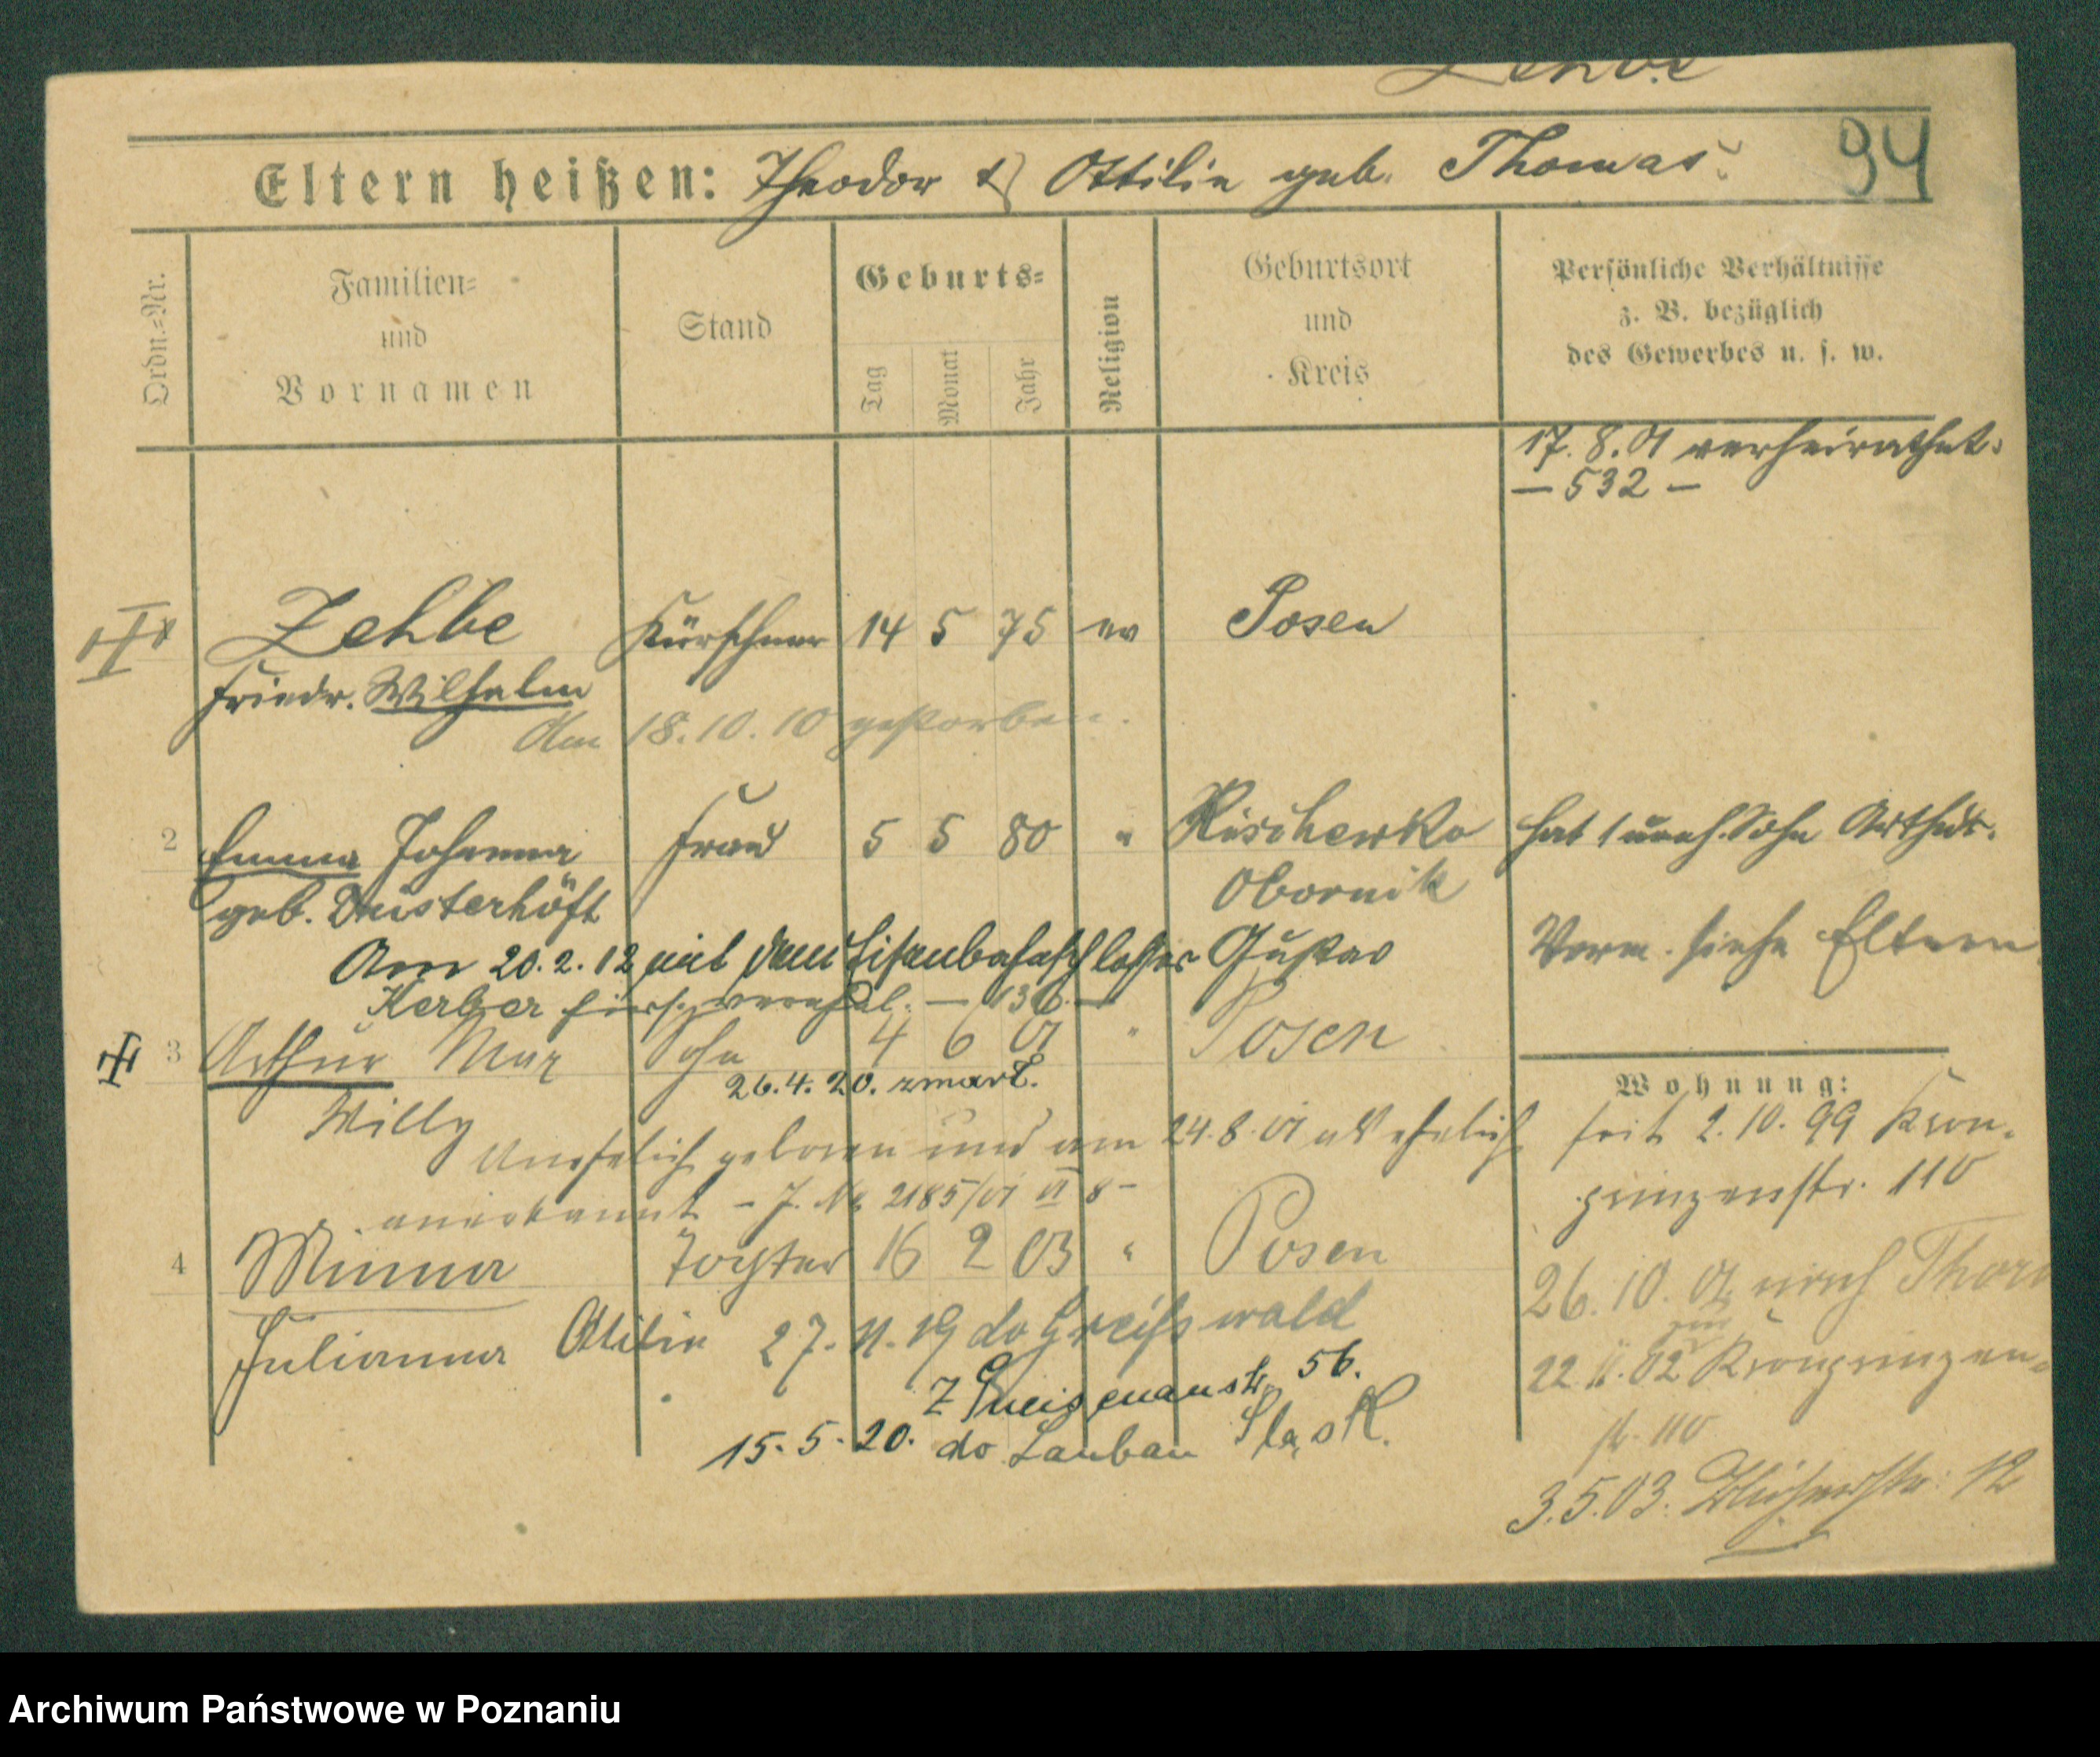 Zehbe
Eltern heißen: Theodor & Ottilie geb. Thomas.
94
Ordn.=Nr.
Familien=
und
Vornamen
Stand
Geburts=
Tag
Monat
Jahr
Religion
Geburtsort
und
Kreis
Persönliche Verhältnisse
z. B. bezüglich
des Gewerbes u. s. w.
17. 8. 01 verheirathet.
— 532 —
Zehbe Kürschner 14 5 75 ev Posen
Friedr. Wilhelm
Am 18. 10. 10 gestorben.
2 Emma Johanna Frau 5 5 80 " Kischewko hat 1 uneh. Sohn Arthur.
geb. Düsterhöft Obornik
Am 20. 2. 12 mit dem Eisenbahnschlosser Gustav
Verm. siehe Eltern
Kerber hier verehel. — 136 —
3 Arthur Max Sohn 4 6 01 " Posen
26. 4. 20. zmarł.
Willy
Unehelich geboren und am 24. 8. 01 als ehelich
anerkannt - J. No 2185/01 VI 8 -
Wohnung:
seit 2. 10. 99 Kron-
prinzenstr. 110
4 Minna Tochter 16 2 03 " Posen
Julianna Ottilie 27. 11. 19 do Greifswald
Z Gneisenaustr. 56.
15. 5. 20. do Lauban Śląsk.
26. 10. 01 nach Thorn
22 11. 02 Kronprinzen-
str. 110
3. 5. 03. 12
Archiwum Państwowe w Poznaniu